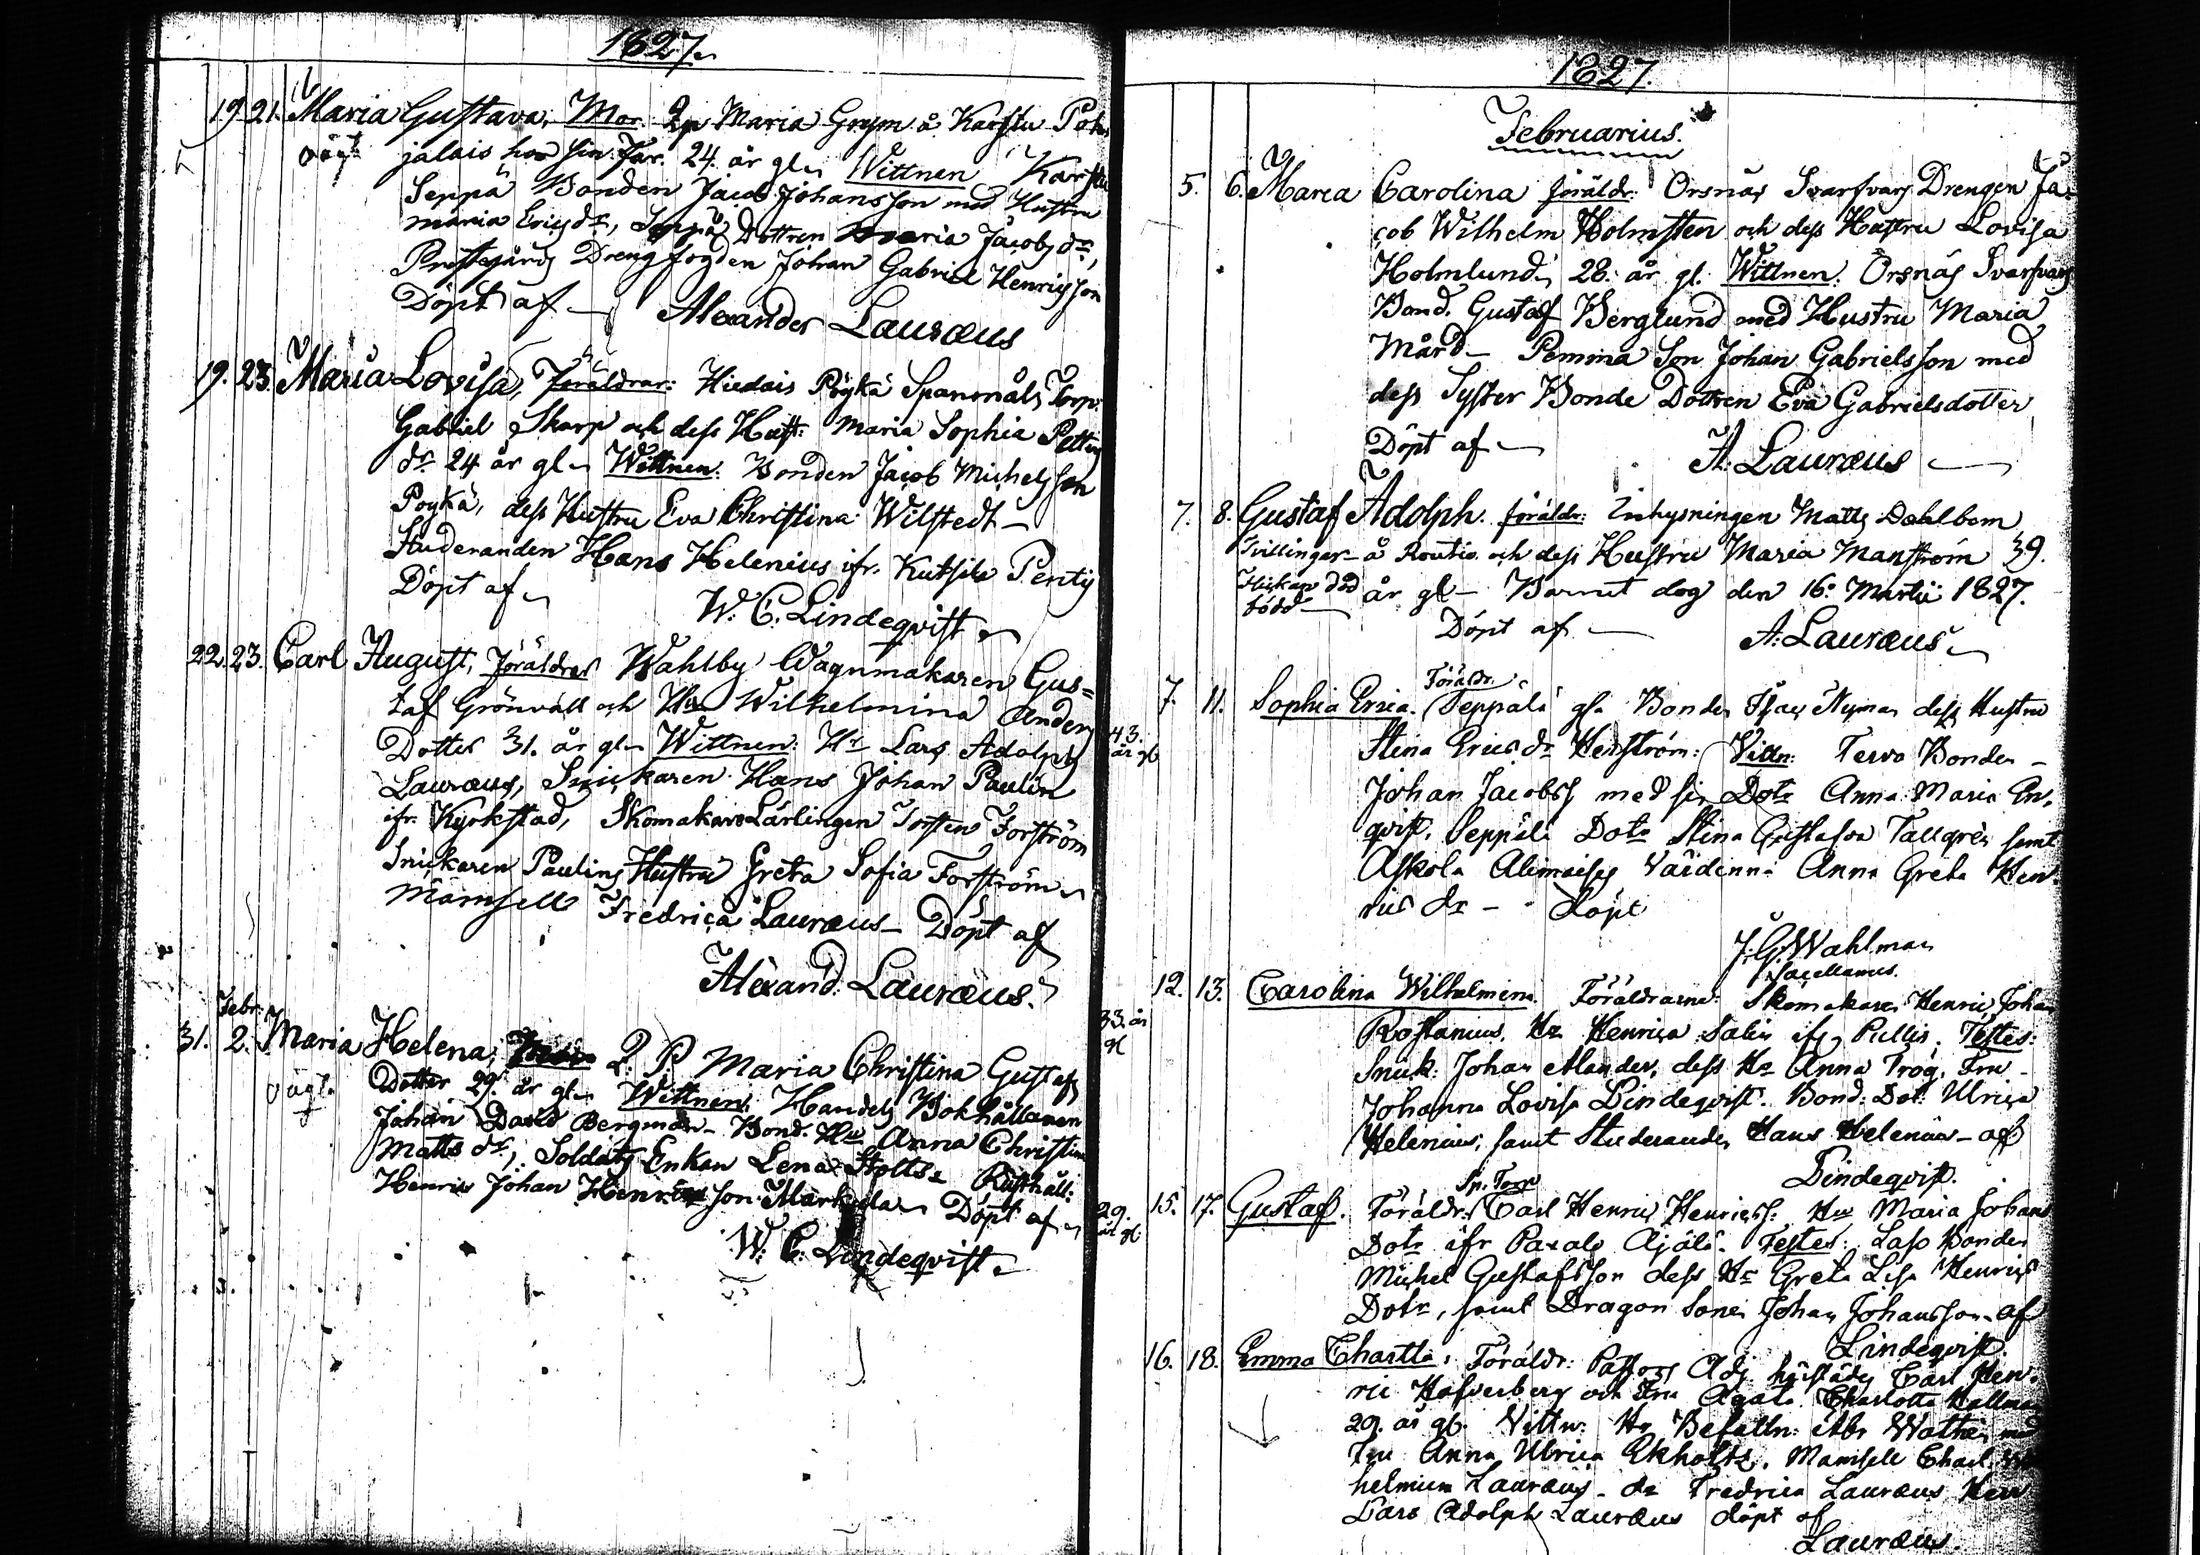 1827.
19. 21. Maria Gustava, Mor. Qp Maria Grym å Karstu Poh
oägt. jalais hos sin Far. 24 år gl. Wittnen Karstu
Seppä Bonden Jacob Johansson med Hustru
Maria Ericsdr, Seppä Dottren Maria Jacobsdr,
Prestgårds Drengfogden Johan Gabriel Henricsson
Döpt af
Alexander Lauræus
19. 23. Maria Lovisa, Föräldrar: Hiedais Pöykä Spanmåls Torp:
Gabriel Skarp och dess Hust: Maria Sophia Petters
dr 24 år gl. Wittnen: Bonden Jacob Michelsson
Poykä, dess Hustru Eva Christina Wilstedt
Studeranden Hans Helenius ifr. Kutsila Pentij
Döpt af
W. C. Lindeqvist
22. 23. Carl August, Föräldrar Wahlby Wagnmakaren Gus=
taf Grönvall och Hu Wilhelmina Anders
Dotter 31. år gl. Wittnen: Hr Lars Adolph
Lauræus, Snickaren Hans Johan Paulin
ifr. Kyrkstad, Skomakare Lärlingen Torsten Forström
Snickaren Paulins Hustru Greta Sofia Forström
Mamsell Fredrica Lauræus Döpt af
Alexand. Lauræus.
Febr:
31. 2. Maria Helena, Q. P. Maria Christina Gustafs
oägt. Dotter 29. år gl. Wittnen: Handels Bokhållaren
Johan David Bergman Bond. Hu Anna Christina
Matts dr, Soldats Enkan Lena Stolts Rusthåll:
Henric Johan Henricsson Markula Döpt af
W. C. Lindeqvist.
1827.
Februarius.
5. 6. Maria Carolina föräldr: Orsnäs Svarfvars Drengen Ja-
cob Wilhelm Holmsten och dess Hustru Lovisa
Holmlund, 28. år gl. Wittnen: Örsnäs Svarfvars
Bond. Gustaf Berglund med Hustru Maria
Mård Pemma Son Johan Gabrielsson med
dess Syster Bonde Dottren Eva Gabrielsdotter
Döpt af
A. Lauræus
7. 8. Gustaf Adolph. föräldr: Inhysningen Matts Dahlbom
Tvillingar å Routio och dess Hustru Maria Manström 39.
Flickan död år gl Barnet dog den 16. Martii 1827.
född
Döpt af A. Lauræus
Föräldr.
7. 11. Sophia Erica. Seppälä gla Bonden Isac Nyman dess Hustru
43. år gl Stina Ericsdr Henström: Vittn: Tervo Bonden
Johan Jacobss med sin Dotr Anna Maria En,
qvist, Seppälä Dotr Stina Gustafva Tallgren samt
Askola Alimaises Värdinna Anna Greta Hen-
rics dr döpt
J. G. Wahlman
Sacellanus.
12. 13. Carolina Wilhelmina Föräldrarne: Skomakaren Henric Johan
33. år gl Rostanius, Hu Henrica Salin ifr. Pellis. Testes:
Snick: Johan Alander, dess Hu Anna Trög, Fru
Johanna Lovisa Lindeqvist. Bond: Dot: Ulrica
Helenius, samt Studeranden Hans Helenius af
Lindeqvist.
Sp. Torp
15. 17. Gustaf. Föräldr: Carl Henric Henricss: Hu Maria Johans
29. år gl Dotr ifr Paxalo Ajälä. Testes: Laso Bonden
Michel Gustafsson dess Hu Greta Lisa Henrics
Dotr, samt Dragon Sonen Johan Johansson af
Lindeqvist.
16. 18. Emma Chartta, Föräldr: Pastors Adj. härstädes Carl Hen-
ric Hafverberg och Fru Agata Charlotta Hallman
29. år gl. Vittn: Hr Befalln: Abr Wathen med
Fru Anna Ulrica Ekholtz, Mamsell Charl. Wil
helmina Lauræus, do Fredrica Lauræus Herr
Lars Adolph Lauræus döpt af
Lauræus.